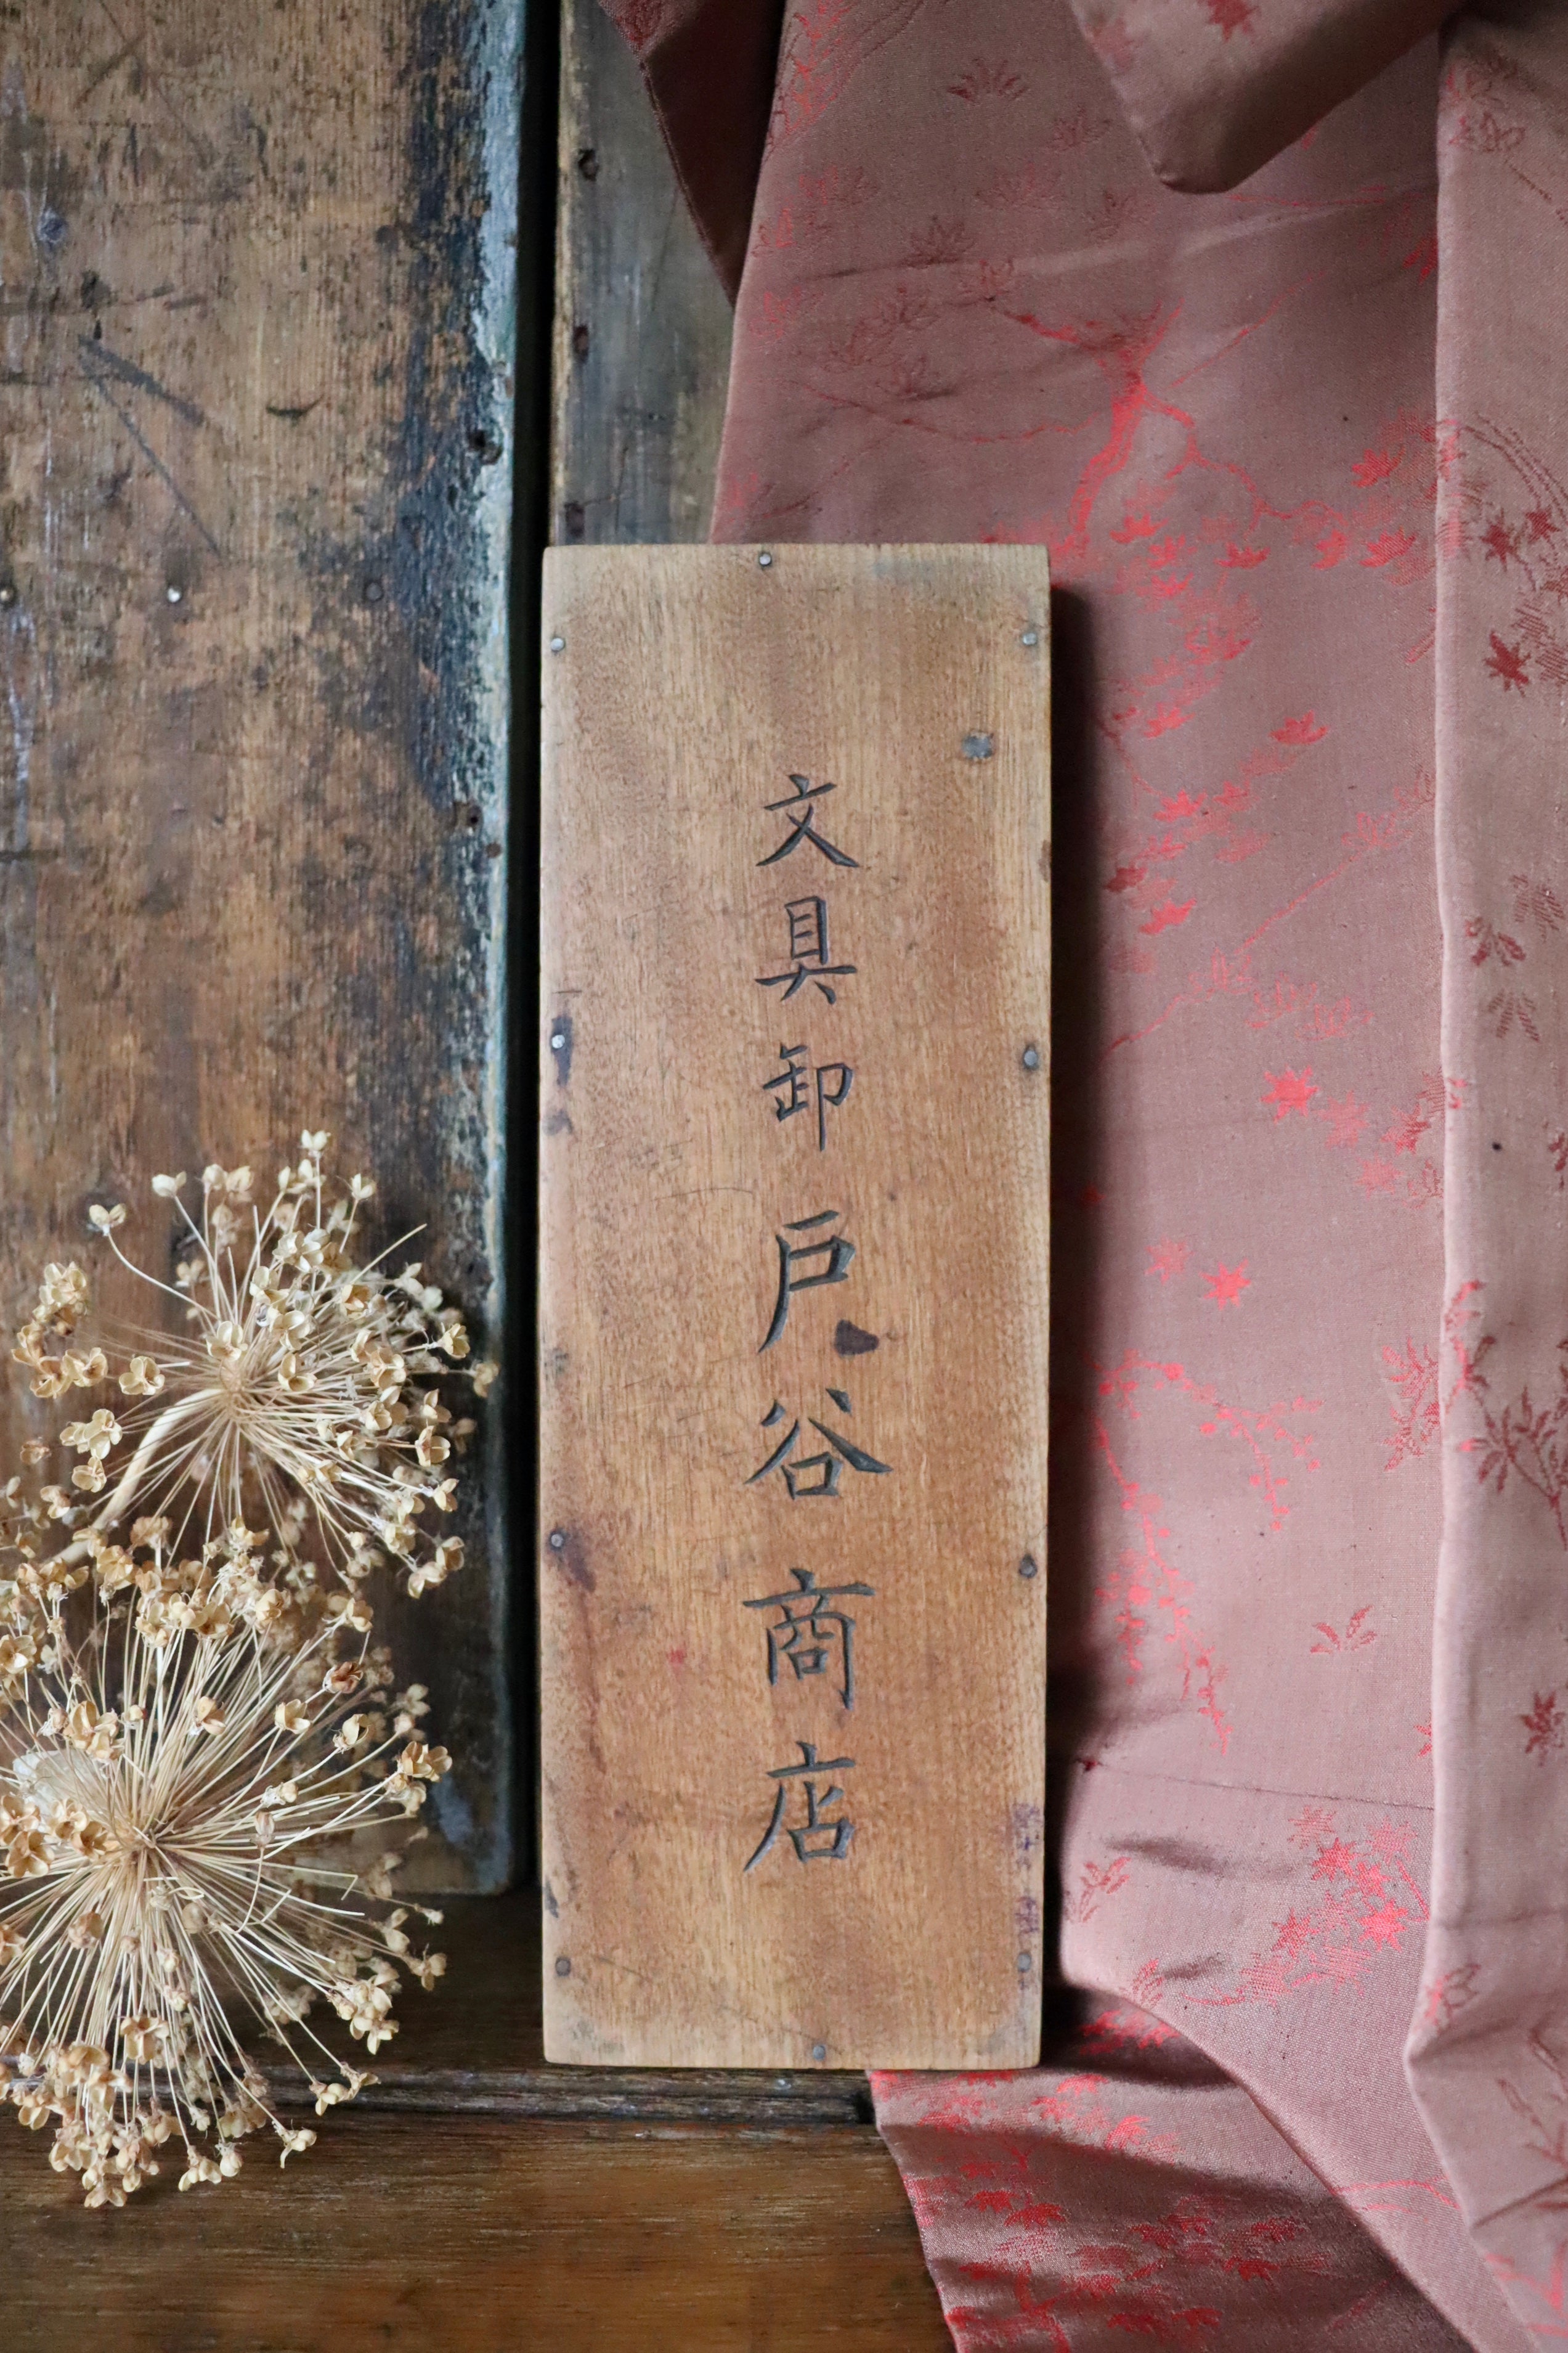 文具卸戸谷商店